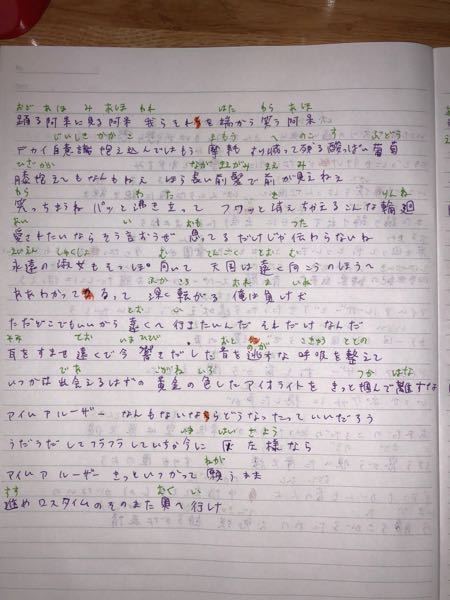 おど あほ み あほ われ はた わら あほ
踊る阿呆に見る阿呆 我らそれを端から笑う阿呆
じいしき かかこ まもう へ のこ す ぶどう
デカイ自意識抱え込んではもう 摩耗 すり減って残る酸っぱい葡萄
ひざかか なが まえがみ まえ み
膝抱えてもなんもねえ ほら長い前髪で前が見えねえ
わら わ た き りんね
笑っちまうね パッと沸き立って フワッと消えちゃえるこんな輪廻
あい い おも つた
愛されたいならそう言おうぜ 思ってるだけじゃ伝わらないね
えいえん しゅくじょ む てんごく とお む
永遠の淑女もそっぽ向いて 天国は遠く向こうのほうへ
ふか ころ おれ ま いぬ
ああわかってるって 深く転がる 俺は負け犬
とお い
ただどこでもいいから遠くへ行きたいんだ それだけなんだ
みみ とお いまひび おと のが こきゅう ととの
耳をすませ遠くで今響きだした音を逃すな 呼吸を整えて
であ おうごん いろ つか はな
いつかは出会えるはずの 黄金の色したアイオライトを きっと掴んで離すな
アイムアルーザー なんもないならどうなったっていいだろう
いま はい さよう
うだうだしてフラフラしていちゃ今に 灰 左様なら
ねが
アイムアルーザー きっといつかって願う
すす おく い
進めロスタイムのそのまた奥へ行け